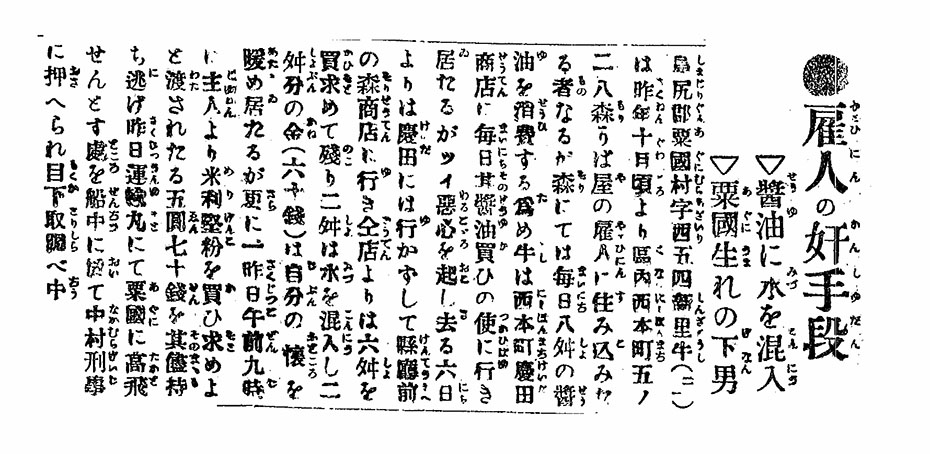 ●雇人の奸手段
▽醬油に水を混入
▽粟國生れの下男
島尻郡粟國村字西五四新里牛(二一)
は昨年十日頃より區内西本町五ノ
二八森うば屋の雇人に住み込み
る者なるが森にては毎日八舛の醬
油を消費する爲め牛は西本町慶田
商店に毎日其醬油買ひの使に行き
居たるがツイ惡心を起し去る六日
よりは慶田には行かずして縣廳前
の森商店に行き仝店よりは六舛を
買求めて殘り二舛は水を混入し二
舛分の金(六十錢)は自分の懷を
暖め居たるが更に一昨日午前九時
に主人より米利堅粉を買ひ求めよ
と渡されたる五圓七十錢を其儘持
ち逃げ昨日運輸丸にて粟國に高飛
せんとす處を船中に於て中村刑事
に押へられ目下取調べ中